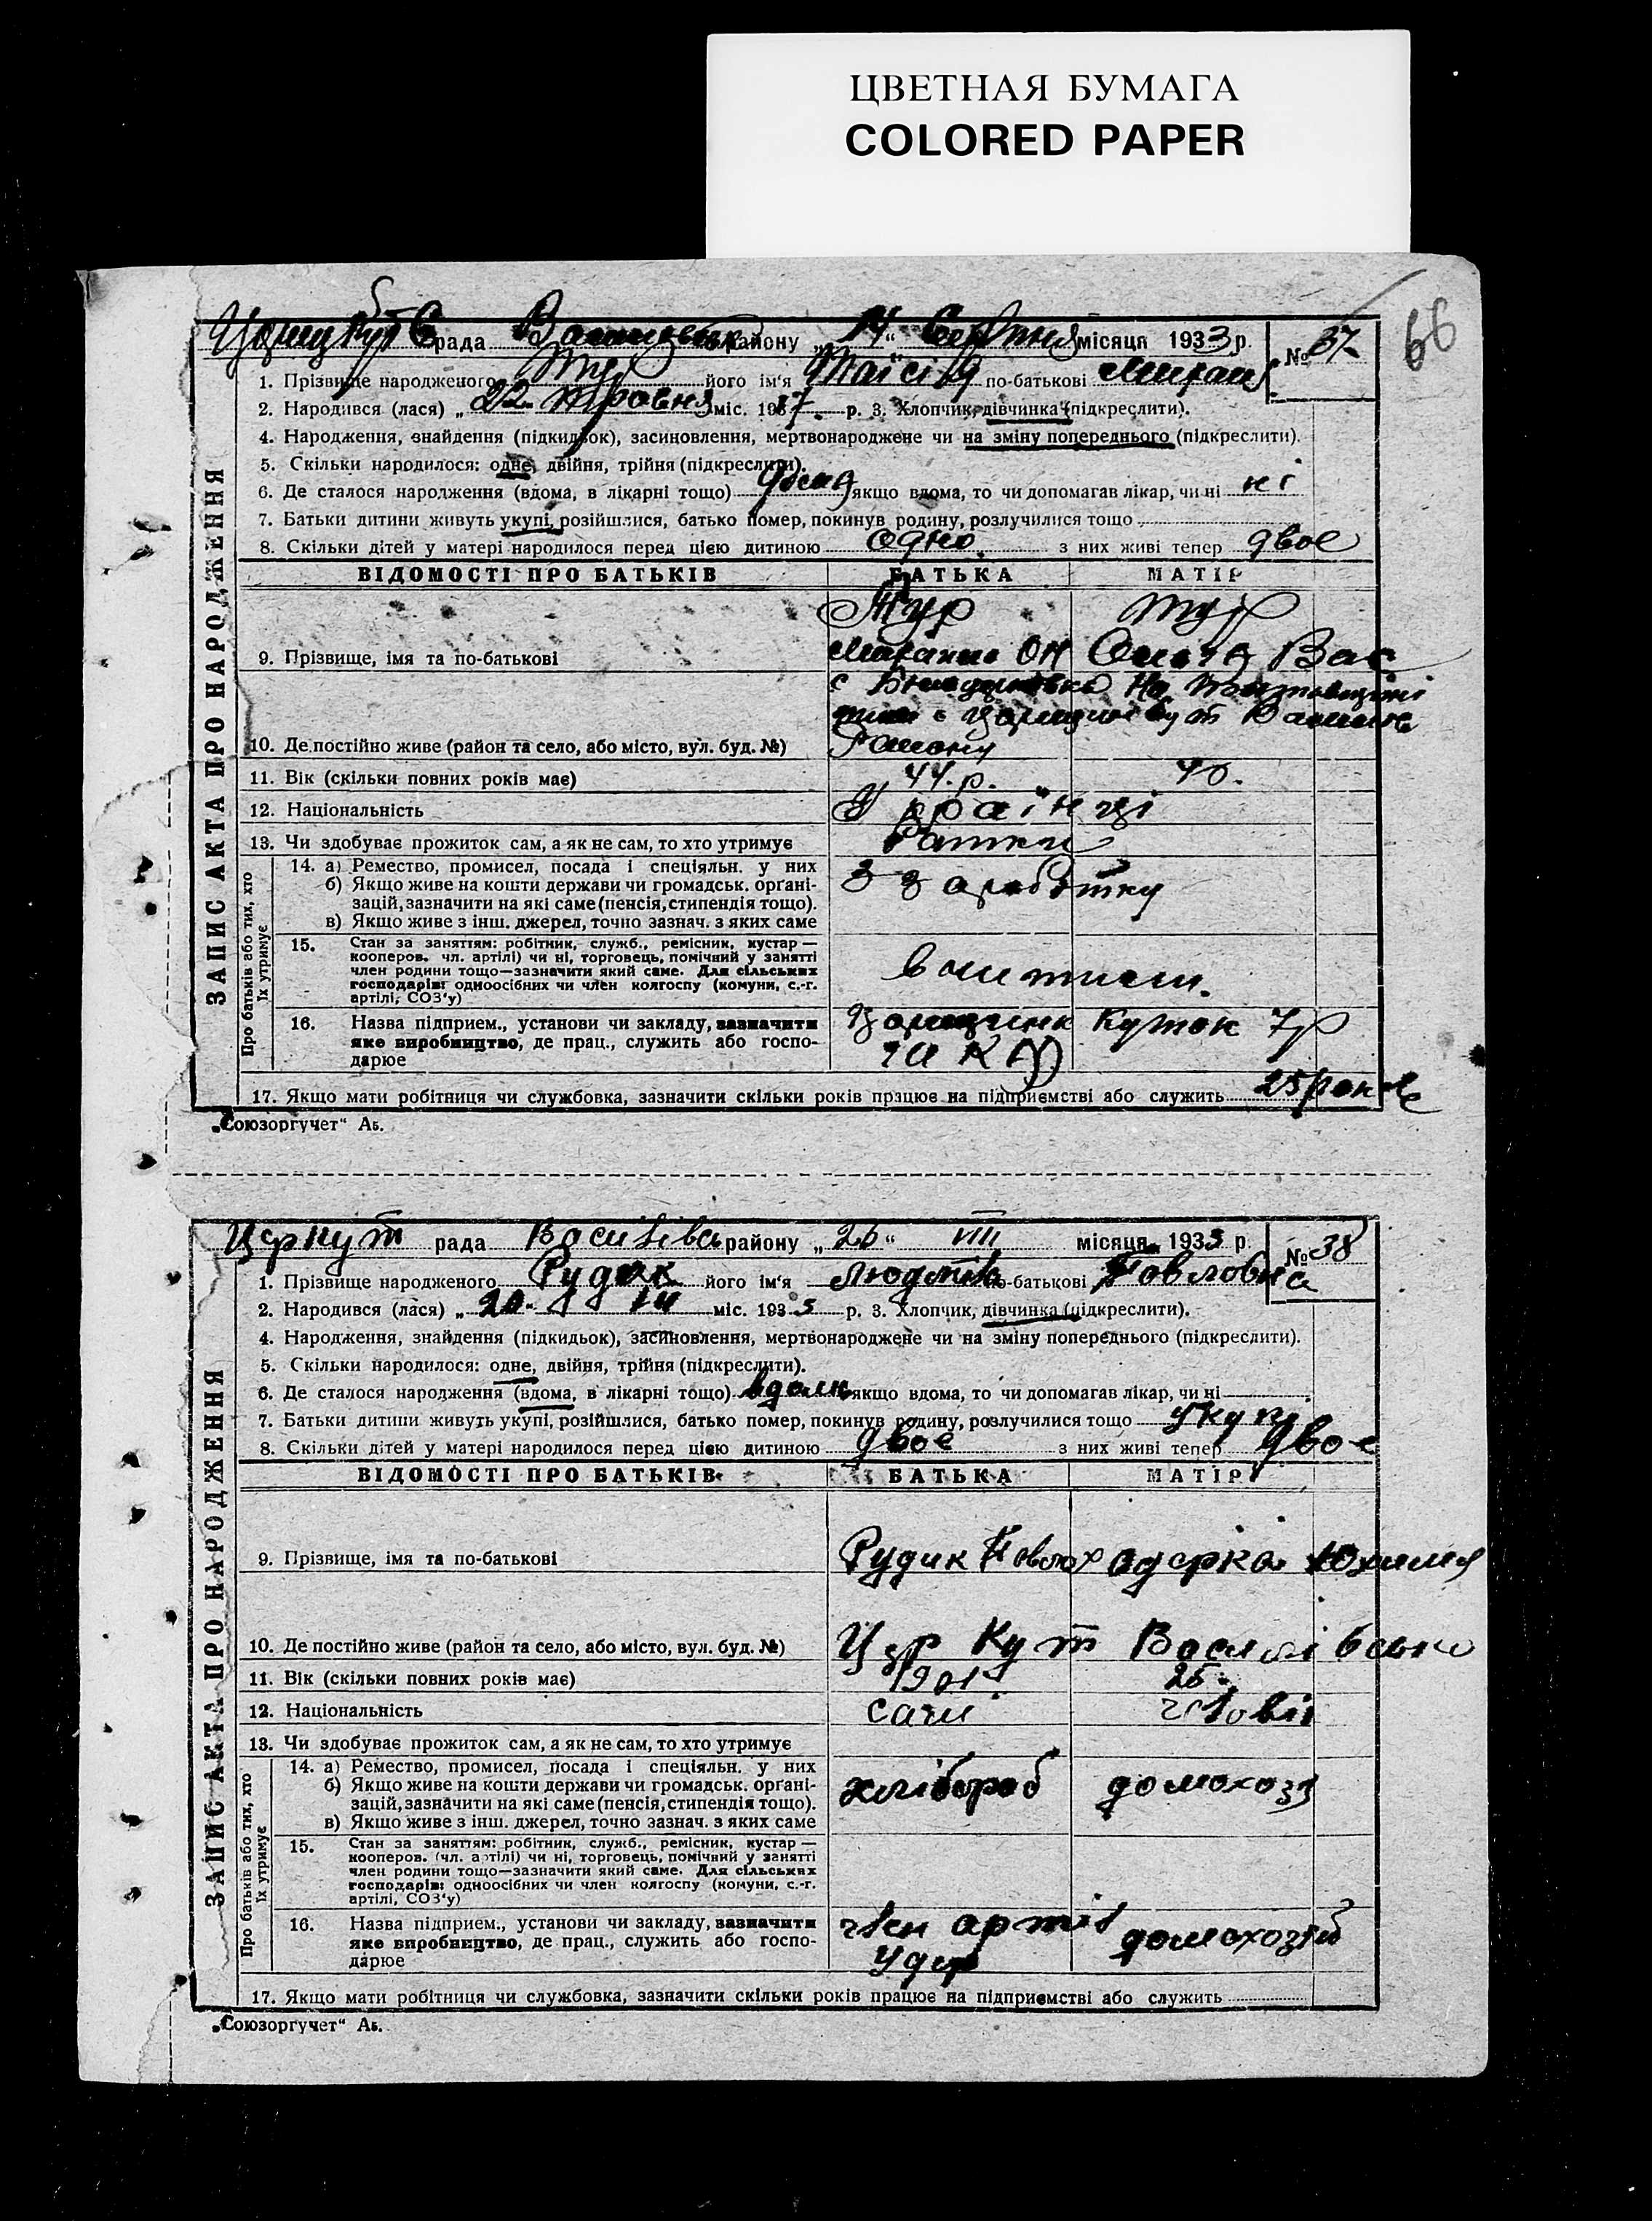 ЦВЕТНАЯ БУМАГА
COLORED PAPER
66
рада районну „14“ Серпня місяця 1933 р. № 37
1. Прізвище народженого Тур його ім'я Таісія по-батькові
2. Народився (лася) „22 травня міс. 1917 р. 3. Хлопчик, дівчинка (підкреслити).
4. Народження, знайдення (підкидьок), засиновлення, мертвонароджене чи на зміну попереднього (підкреслити).
5. Скільки народилося: одне, двійня, трійня (підкреслити).
6. Де сталося народження (вдома, в лікарні тощо) дома якщо вдома, то чи допомагав лікар, чи ні ні
7. Батьки дитини живуть укупі, розійшлися, батько помер, покинув родину, розлучилися тощо
8. Скільки дітей у матері народилося перед цією дитиною одно. з них живі тепер двоє
ЗАПИС АКТА ПРО НАРОДЖЕННЯ
ВІДОМОСТІ ПРО БАТЬКІВ БАТЬКА МАТІР
Тур Тур
9. Прізвище, імя та по-батькові Вас
10. Де постійно живе (район та село, або місто, вул. буд. №) Району
11. Вік (скільки повних років має) 44.р. 40.
12. Національність Українці
13. Чи здобуває прожиток сам, а як не сам, то хто утримує
Про батьків або тих, хто їх утримує
14. а) Ремество, промисел, посада і спеціяльн. у них
б) Якщо живе на кошти держави чи громадськ. орґані-
зацій, зазначити на які саме (пенсія, стипендія тощо).
в) Якщо живе з інш. джерел, точно зазнач. з яких саме
З заработку
15. Стан за заняттям: робітник, служб., ремісник, кустар —
кооперов. чл. артілі) чи ні, торговець, помічний у занятті
член родини тощо—зазначити який саме. Для сільських
господарів: одноосібних чи член колгоспу (комуни, с.-г.
артілі, СОЗ'у)
16. Назва підприєм., установи чи закладу, зазначити
яке виробництво, де прац., служить або госпо-
дарює
17. Якщо мати робітниця чи службовка, зазначити скільки років працює на підприємстві або служить 25 років
„Союзоргучет“ Аб.
Царкут рада Василівсь району „26“ VIII місяця 1933 р. № 38
1. Прізвище народженого Рудик його ім'я Людмів по-батькові Павловна
2. Народився (лася) „20. міс. 1933 р. 3. Хлопчик, дівчинка (підкреслити).
4. Народження, знайдення (підкидьок), засиновлення, мертвонароджене чи на зміну попереднього (підкреслити).
5. Скільки народилося: одне, двійня, трійня (підкреслити).
6. Де сталося народження (вдома, в лікарні тощо) вдома якщо вдома, то чи допомагав лікар, чи ні
7. Батьки дитини живуть укупі, розійшлися, батько помер, покинув родину, розлучилися тощо укупі
8. Скільки дітей у матері народилося перед цією дитиною двоє з них живі тепер двоє
ЗАПИС АКТА ПРО НАРОДЖЕННЯ
ВІДОМОСТІ ПРО БАТЬКІВ БАТЬКА МАТІР
9. Прізвище, імя та по-батькові Рудик Павло Одарка
10. Де постійно живе (район та село, або місто, вул. буд. №) Цар Кут Василівсько
11. Вік (скільки повних років має) 1901 25
12. Національність
13. Чи здобуває прожиток сам, а як не сам, то хто утримує самі
Про батьків або тих, хто їх утримує
14. а) Ремество, промисел, посада і спеціяльн. у них
б) Якщо живе на кошти держави чи громадськ. орґані-
зацій, зазначити на які саме (пенсія, стипендія тощо).
в) Якщо живе з інш. джерел, точно зазнач. з яких саме
хлібороб домохозя
15. Стан за заняттям: робітник, служб., ремісник, кустар —
кооперов. (чл. артілі) чи ні, торговець, помічний у занятті
член родини тощо—зазначити який саме. Для сільських
господарів: одноосібних чи член колгоспу (комуни, с.-г.
артілі, СОЗ'у)
16. Назва підприєм., установи чи закладу, зазначити
яке виробництво, де прац., служить або госпо-
дарює
член артіл Удар домохозяй
17. Якщо мати робітниця чи службовка, зазначити скільки років працює на підприємстві або служить
„Союзоргучет“ Аб.